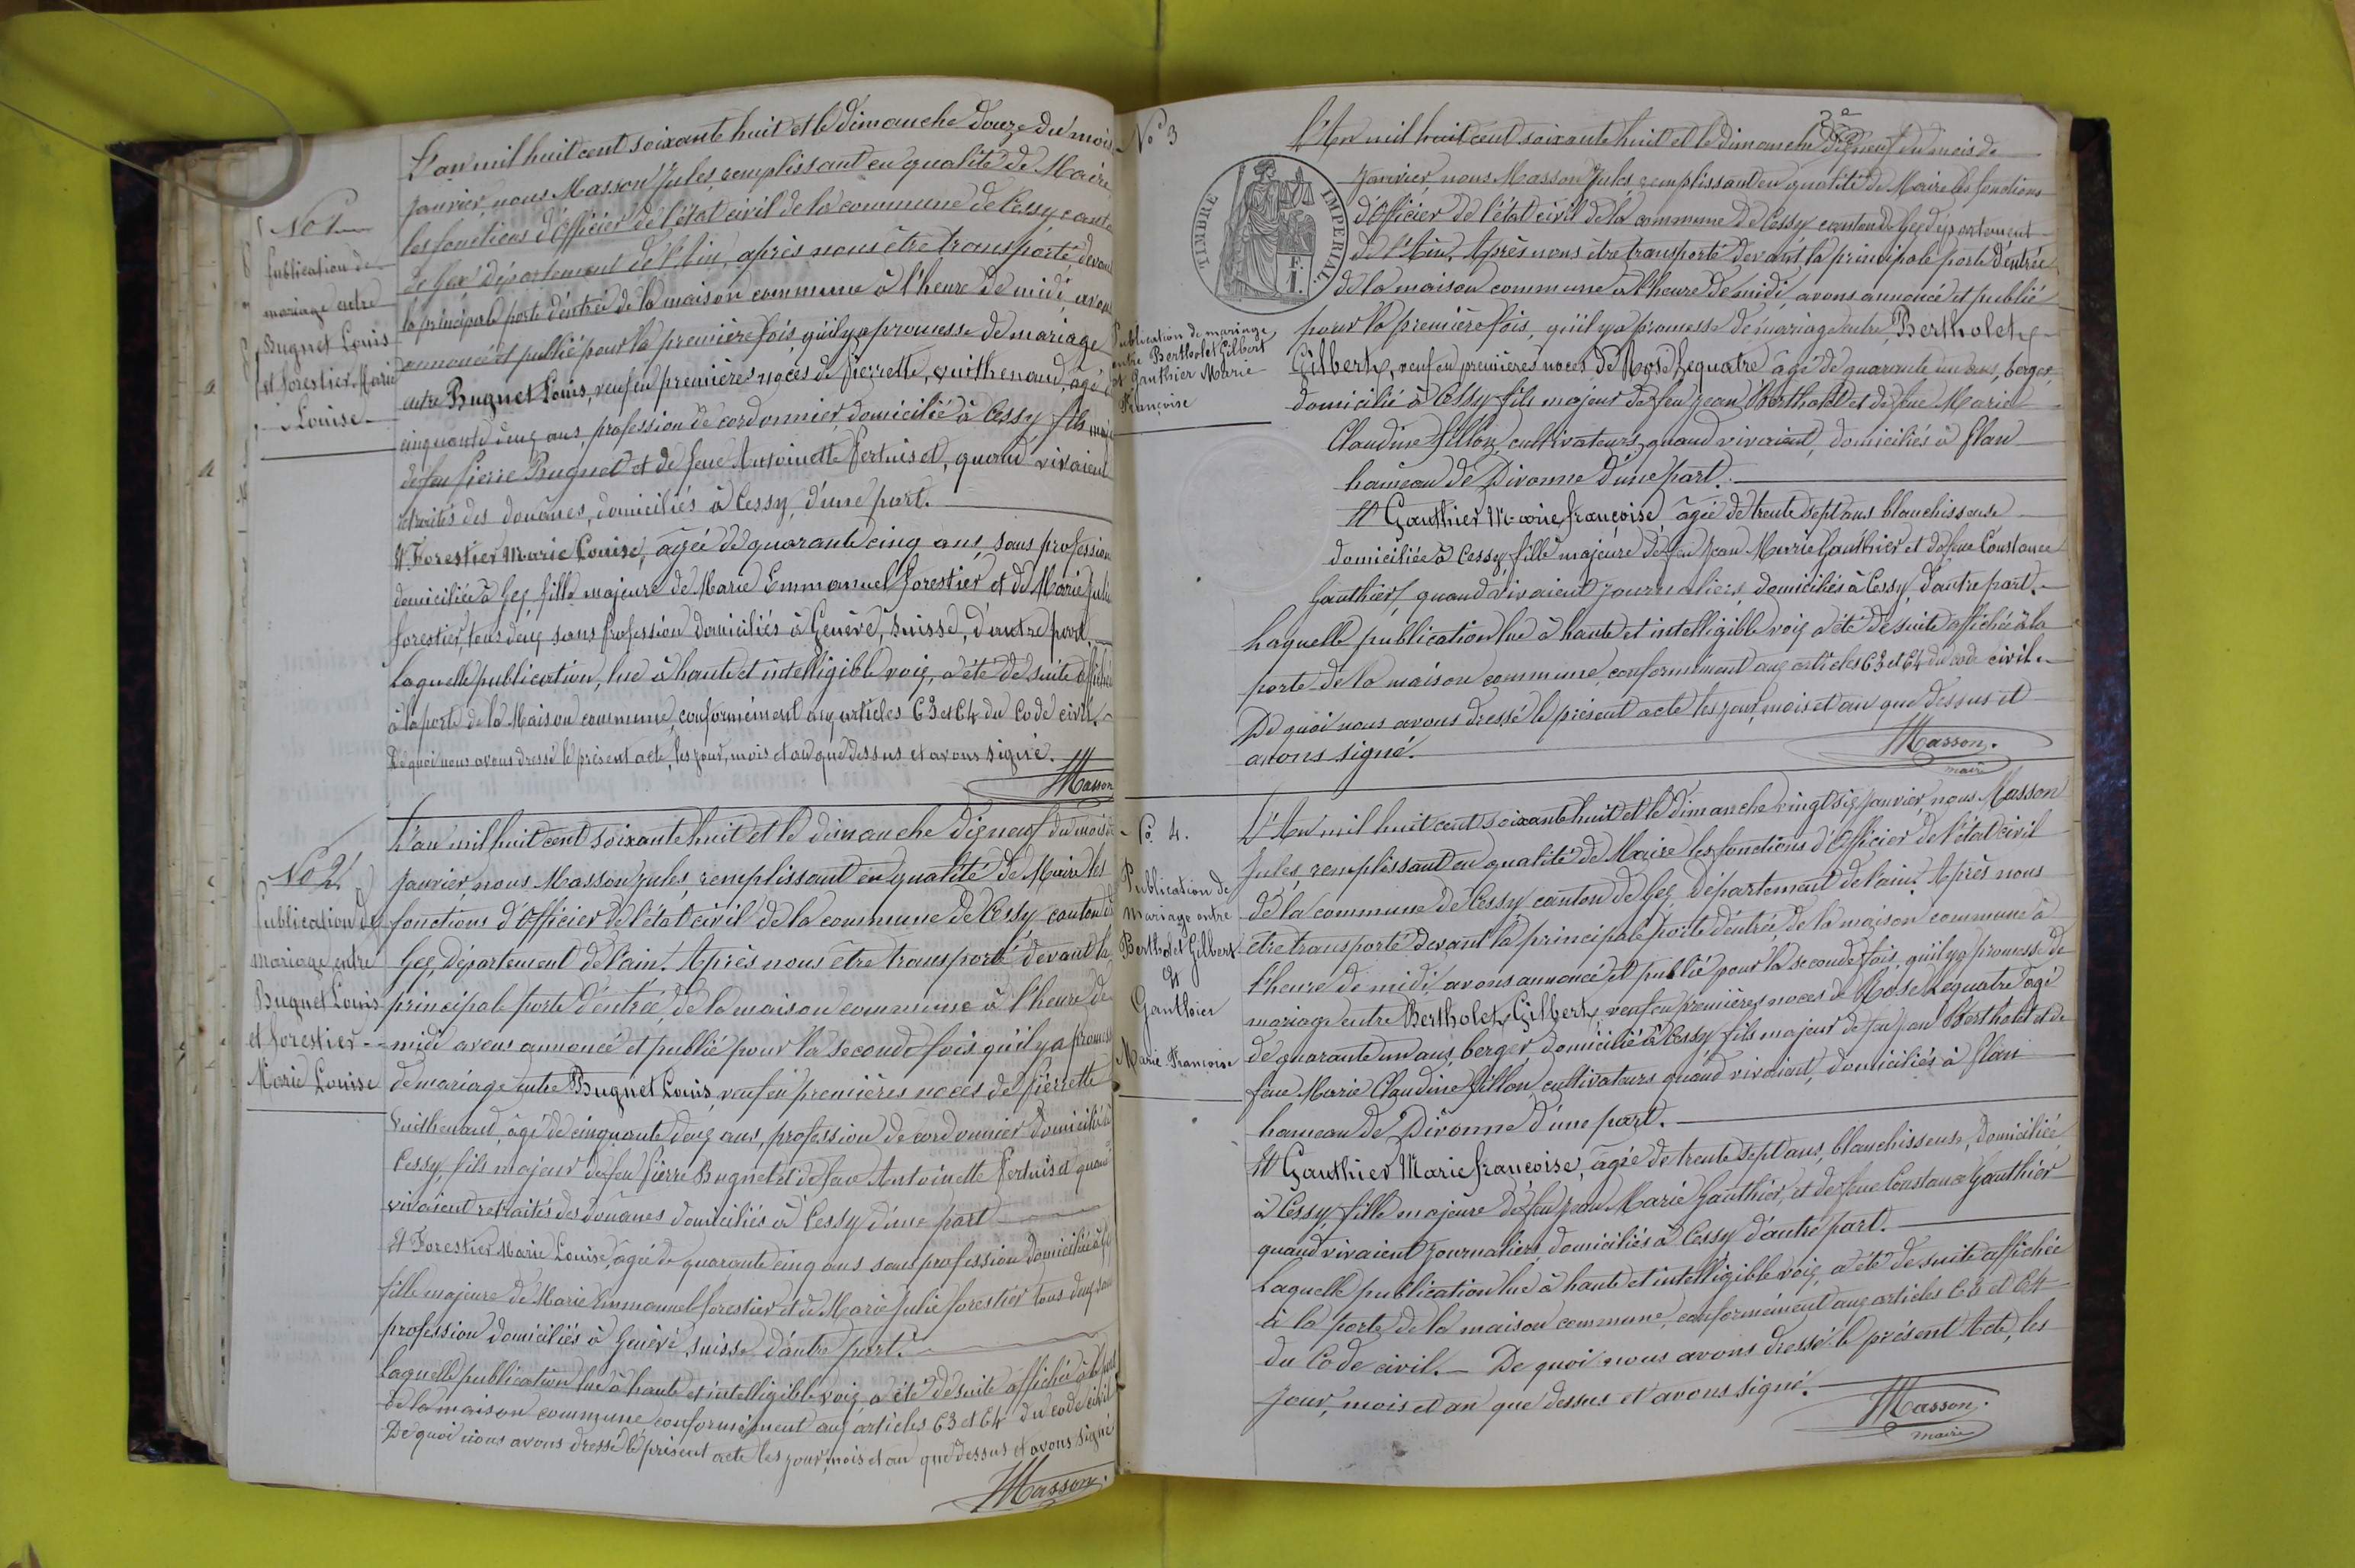 No 1
Publication de
mariage entre
Bugnet Louis
et Forestier Marie
Louise
L'an mil huit cent soixante huit et le dimanche Douze du mois
Janvier, nous Masson Jules, remplissant en qualité de Maire
les fonctions d'Officier de l'état civil de la commune de Cessy canton
de Gex département de l'Ain, après nous être transporté, devant
la principale porte d'entrée de la maison commune à l'heure de midi, avons
annoncé et publié pour la première fois, qu'il y a promesse de mariage
entre Bugnet Louis, veuf en premières noces de Pierrette, Vuithenaud, âgé
cinquante deux ans, profession de cordonnier, domicilié à Cessy fils maj
de feu Pierre Bugnet et de feue Antoinette Pertuiset, quand vivaient
retraités des douanes, domiciliés à Cessy, d'une part.
Et Forestier Marie Louise, âgée de quarante cinq ans, sans profession
domiciliée à Gex, fille majeure de Marie Emmanuel Forestier et de Marie Julie
Forestier, tous deux sans profession domiciliés à Genève, Suisse, d'autre part.
Laquelle publication, lue à haute et intelligible voix, a été de suite affichée
à la porte de la Maison commune, conformément aux articles 63 et 64 du Code civil.
De quoi nous avons dressé le présent acte, les jour, mois et an que dessus et avons signé.
Masson
No 2
Publication de
mariage entre
Bugnet Louis
et Forestier
Marie Louise
L'an mil huit cent soixante huit et le dimanche dixneuf du mois de
Janvier, nous Masson Jules, remplissant en qualité de Maire les
fonctions d'Officier de l'état civil de la commune de Cessy, canton de
Gex, Département de l'ain. Après nous être transporté devant la
principale porte d'entrée de la maison commune à l'heure de
midi avons annoncé et publié pour la seconde fois qu'il y a promesse
de mariage entre Bugnet Louis, veuf en premières noces de Pierrette
Vuithenaud, âgé de cinquante deux ans, profession de cordonnier domicilié à
Cessy, fils majeur de feu Pierre Bugnet et de feue Antoinette Pertuiset quand
vivaient retraités des douanes domiciliés à Cessy d'une part
Et Forestier Marie Louise, âgée de quarante cinq ans sans profession domiciliée à Gex
fille majeure de Marie Emmanuel Forestier et de Marie Julie Forestier tous deux sans
profession domiciliés à Genève, Suisse d'autre part.
Laquelle publication lue à haute et intelligible voix, a été de suite affichée à la porte
de la maison commune, conformément aux articles 63 et 64 du code civil
De quoi nous avons dressé le présent acte les jour, mois et an que dessus et avons signé
Masson.
No 3
TIMBRE IMPERIAL
F.
1.
Publication de mariage
entre Bertholet Gilbert
et Gauthier Marie
Françoise
L'An mil huit cent soixante huit et le dimanche dixneuf du mois de
Janvier, nous Masson Jules, remplissant en qualité de Maire les fonctions
d'Officier de l'état civil de la commune de Cessy canton de Gex département
de l'Ain. Après nous être transporté devant la principale porte d'entrée
de la maison commune à l'heure de midi, avons annoncé et publié
pour la première fois, qu'il y a promesse de mariage entre, Bertholet
Gilbert, veuf en premières noces de Rose Lequatre âgé de quarante un ans, berger,
domicilié à Cessy fils majeur de feu Jean Bertholet et de feue Marie
Claudine Fillon, cultivateurs, quand vivaient, domiciliés à Plan
hameau de Divonne d'une part.
Et Gauthier Marie françoise, âgée de trente sept ans blanchisseuse
domiciliée à Cessy, fille majeure de feu Jean Marie Gauthier et de feue Constance
Gauthier, quand vivaient journaliers, domiciliés à Cessy, d'autre part.
Laquelle publication lue à haute et intelligible voix a été de suite affichée à la
porte de la maison commune, conformément aux articles 63 et 64 du code civil.
De quoi nous avons dressé le présent acte les jour, mois et an que dessus et
avons signé.
Masson.
maire
No 4.
Publication de
Mariage entre
Bertholet Gilbert
et
Gauthier
Marie Françoise
L'An mil huit cent soixante huit et le dimanche vingt six janvier, nous Masson
Jules, remplissant en qualité de Maire les fonctions d'Officier de l'état civil
de la commune de Cessy, canton de Gex, département de l'ain. Après nous
etre transporté devant la principale porte d'entrée, de la maison commune à
l'heure de midi, avons annoncé et publié pour la seconde fois, qu'il y a promesse de
mariage entre Bertholet Gilbert, veuf en premières noces de Rose Lequatre âgé
de quarante un ans, berger, domicilié à Cessy fils majeur de feu Jean Bertholet et de
feue Marie Claudine Fillon, cultivateurs quand vivaient, domiciliés à Plan
hameau de Divonne d'une part.
Et Gauthier Marie françoise, âgée de trente sept ans, blanchisseuse, domiciliée
à Cessy, fille majeure de feu Jean Marie Gauthier, et de feue Constance Gauthier
quand vivaient journaliers, domiciliés à Cessy d'autre part.
Laquelle publication lue à haute et intelligible voix, a été de suite affichée
à la porte de la maison commune, conformément aux articles 63 et 64
du Code civil. De quoi nous avons dressé le présent Acte, les
jour, mois et an que dessus et avons signé.
Masson.
maire